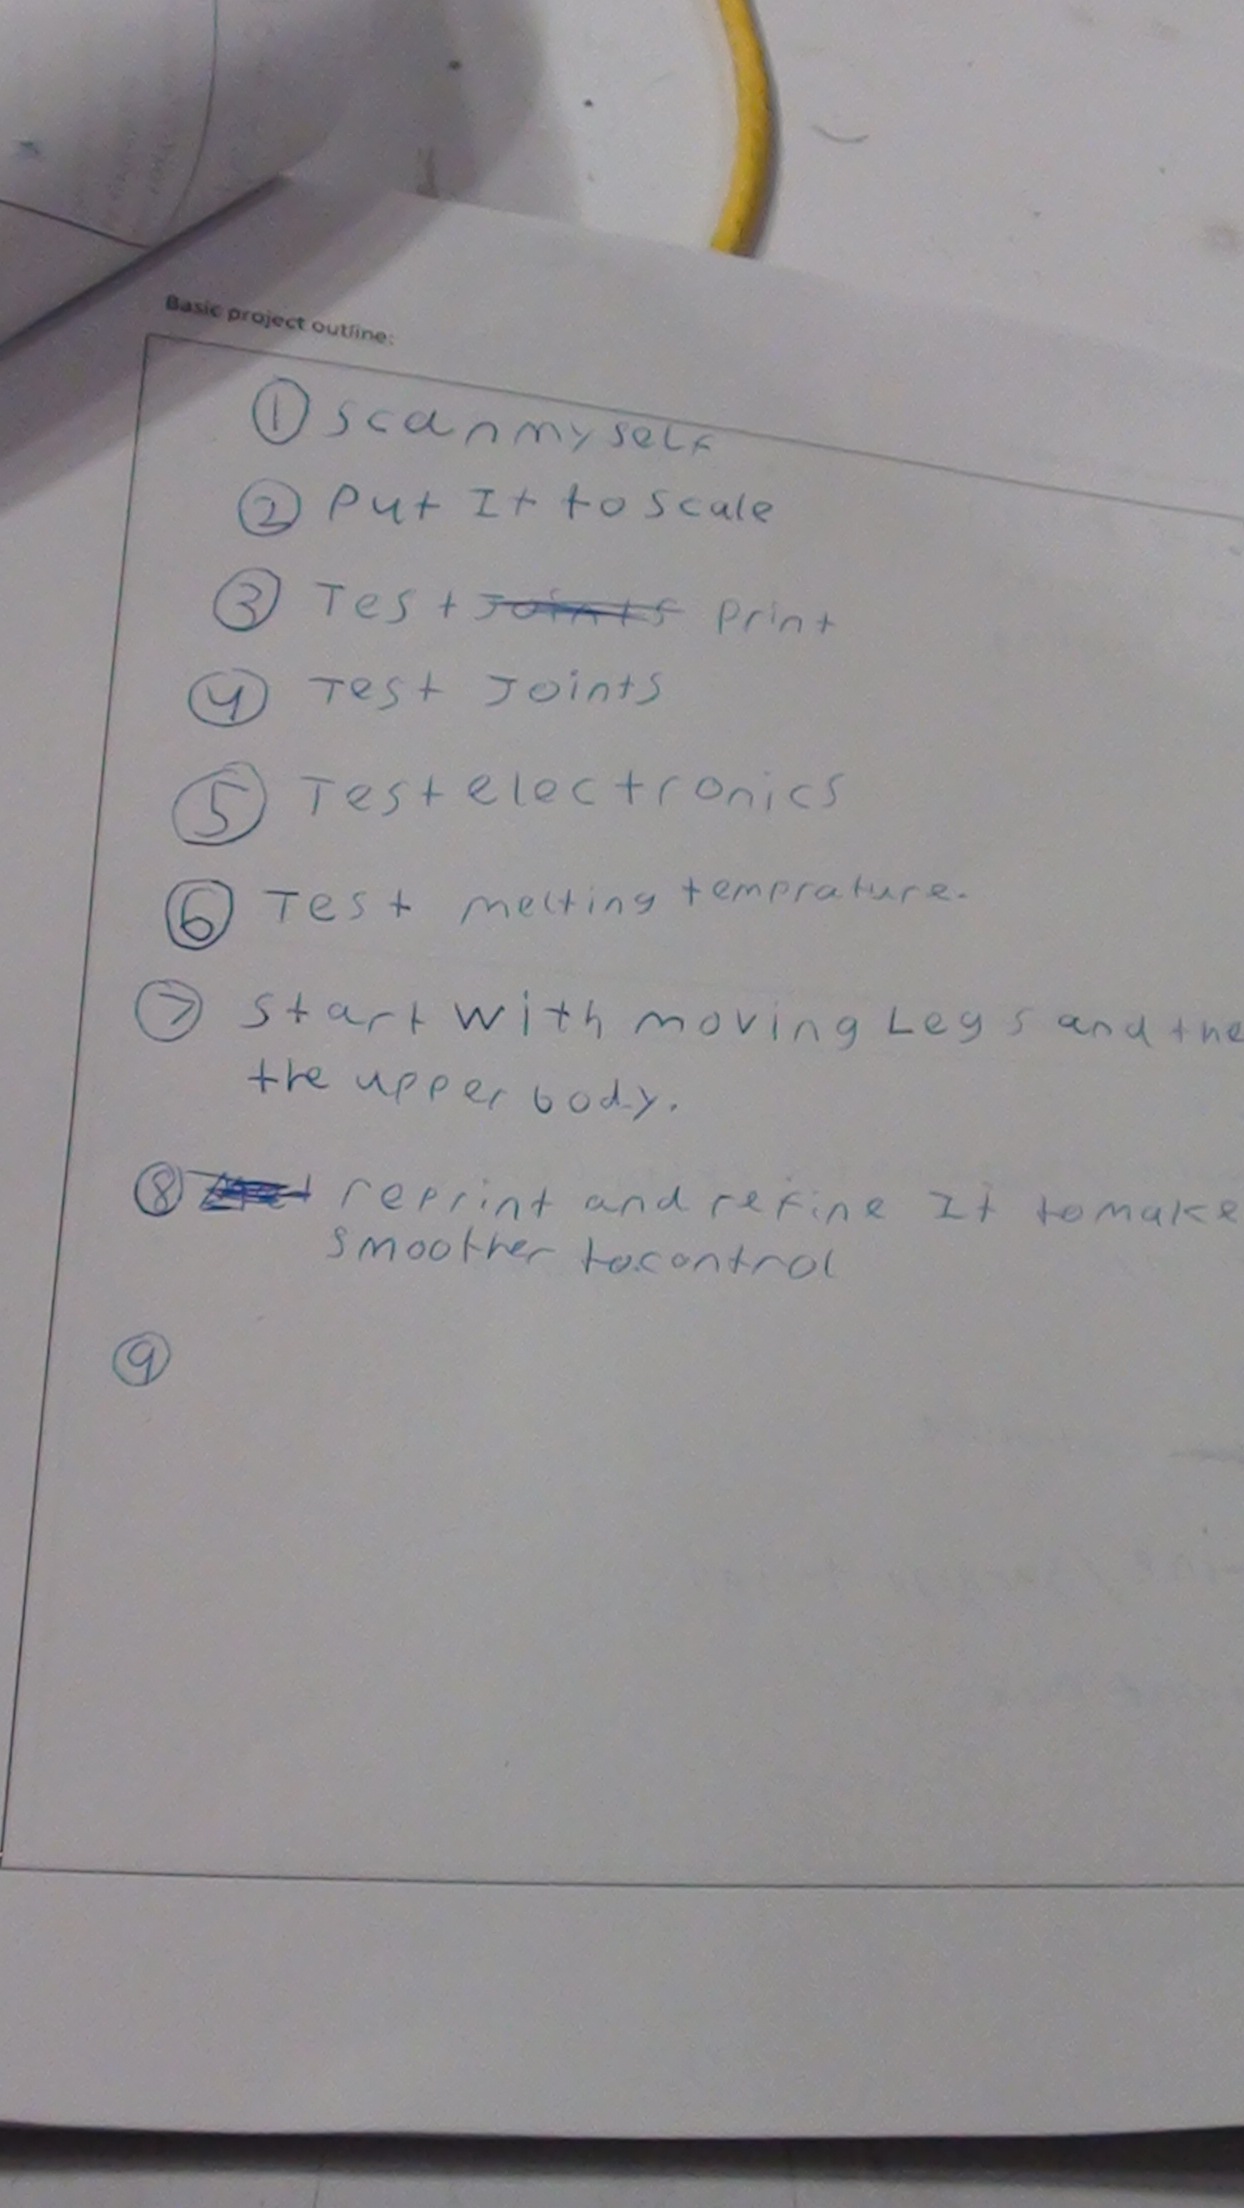 Basic project outline:
① scan myself
② Put It to scale
③ Test Joints Print
④ Test Joints
⑤ Test electronics
⑥ Test melting temprature.
⑦ Start with moving Legs and the
the upper body.
⑧ reprint and refine It to make
smoother to control
⑨